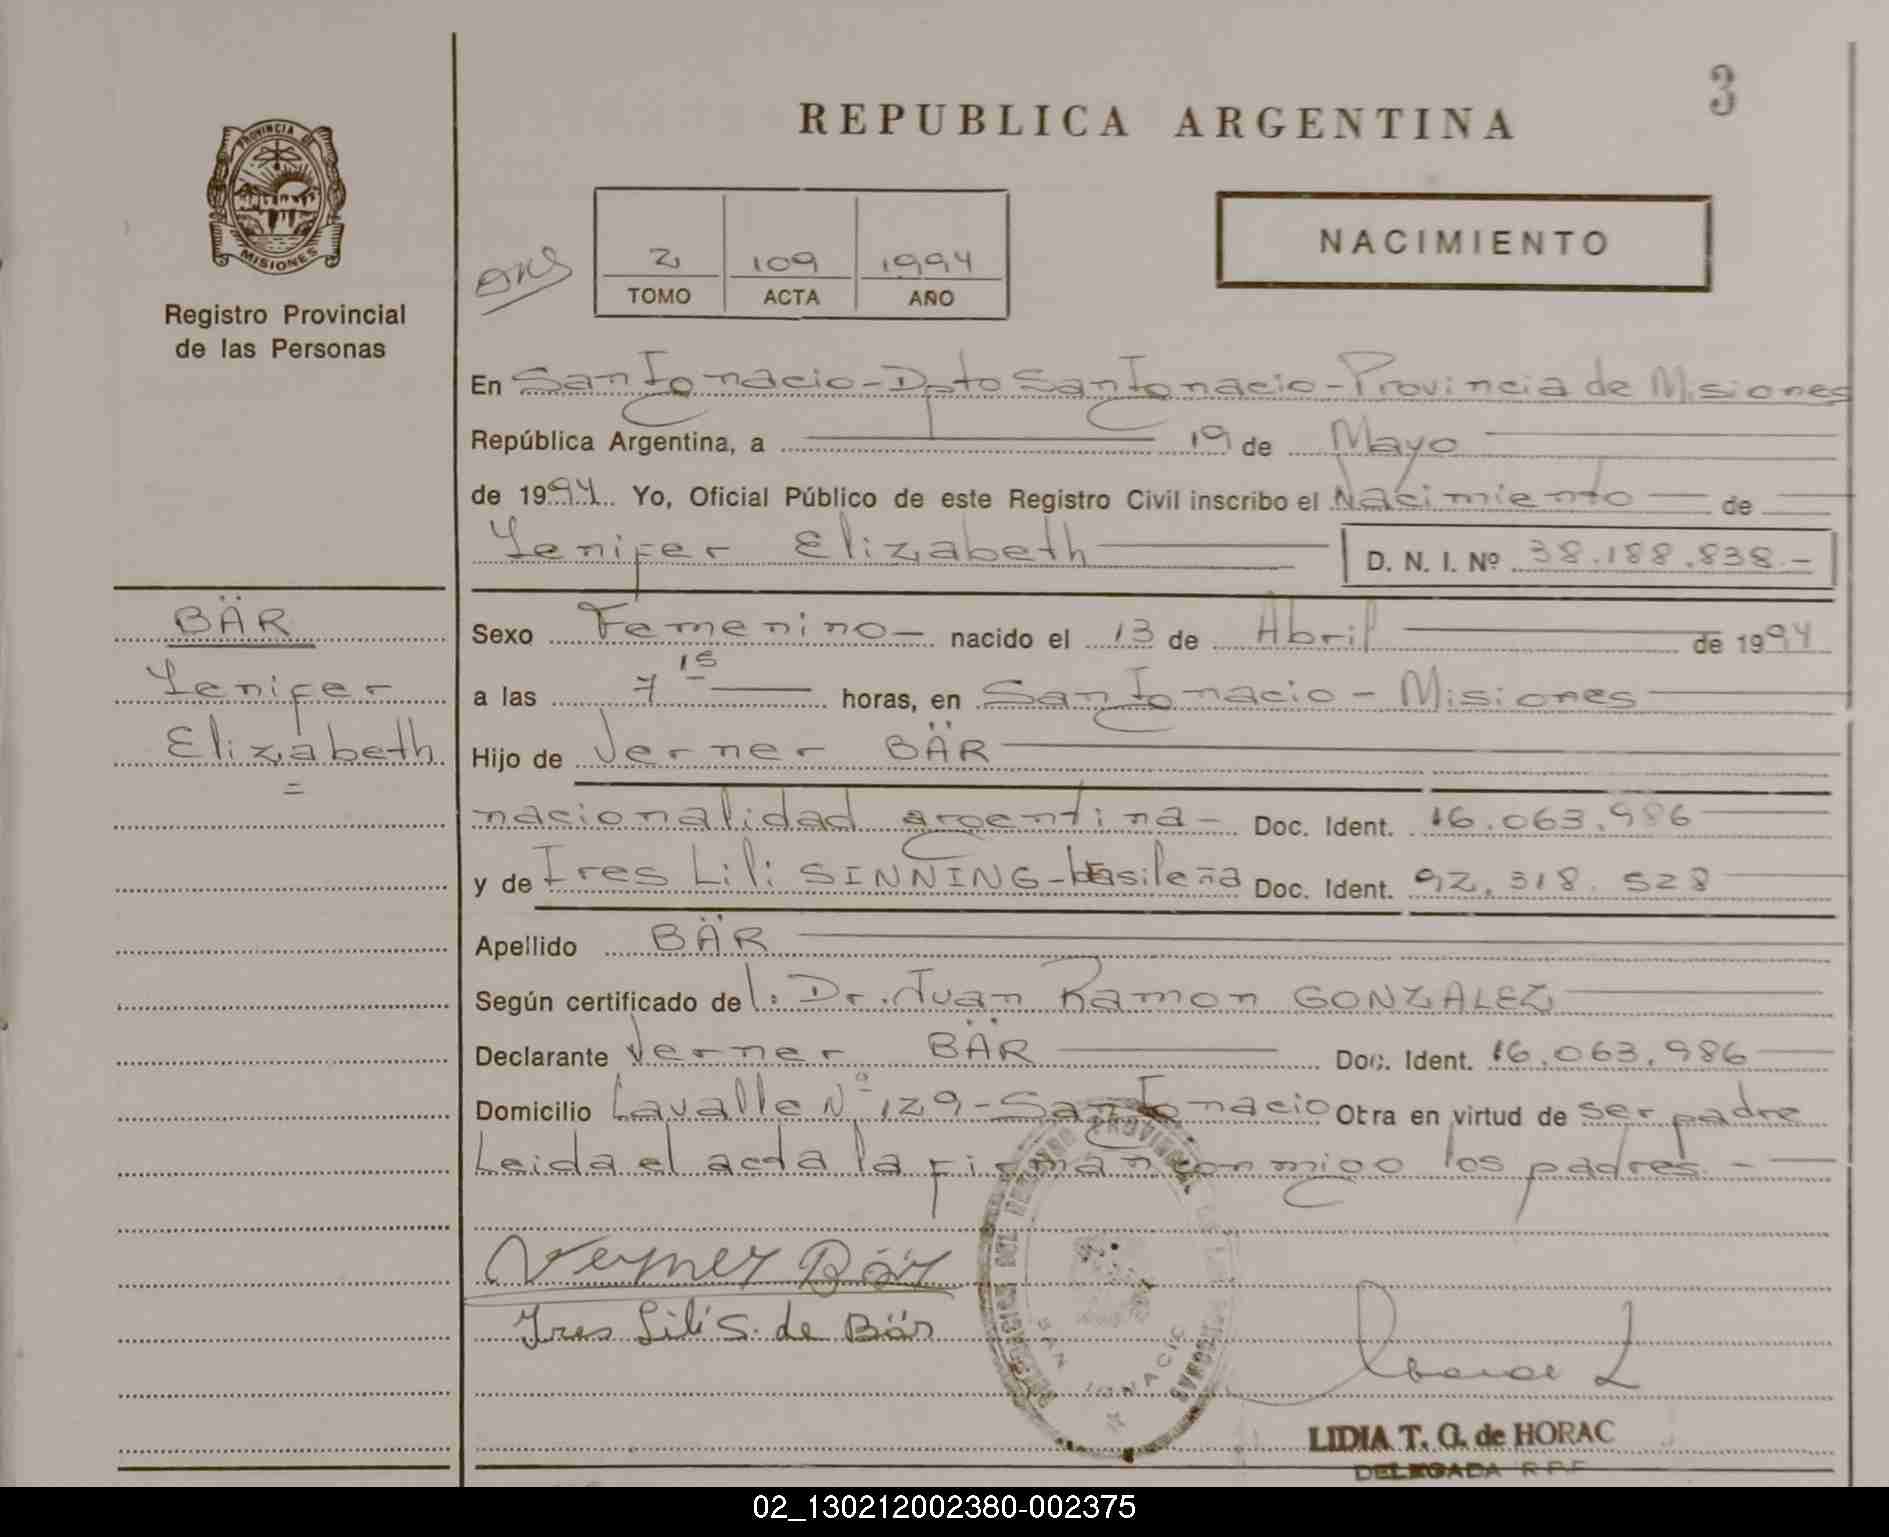 3
REPUBLICA ARGENTINA
PROVINCIA DE
MISIONES
Registro Provincial
de las Personas
2 109 1994
TOMO ACTA AÑO
NACIMIENTO
En San Ignacio - Dpto San Ignacio - Provincia de Misiones
República Argentina, a 19 de Mayo
de 1994 Yo, Oficial Público de este Registro Civil inscribo el Nacimiento de
Yenifer Elizabeth D. N. I. Nº 38.188.838.-
BÄR
Yenifer
Elizabeth
Sexo Femenino - nacido el 13 de Abril de 1994
a las 7 15 horas, en San Ignacio - Misiones
Hijo de Verner BÄR
nacionalidad argentina - Doc. Ident. 16.063.986
y de Ires Lili SINNING - brasileña Doc. Ident. 92.318.528
Apellido BÄR
Según certificado del: Dr. Juan Ramon GONZALEZ
Declarante Verner BÄR Doc. Ident. 16.063.986
Domicilio Lavalle Nº 129 - San Ignacio Otra en virtud de ser padre
Leida el acta la firman conmigo los padres. -
Verner Bär
Ires Lili S. de Bär
SAN IGNACIO
LIDIA T. G. de HORAC
DELEGADA R.P.P
02_130212002380-002375